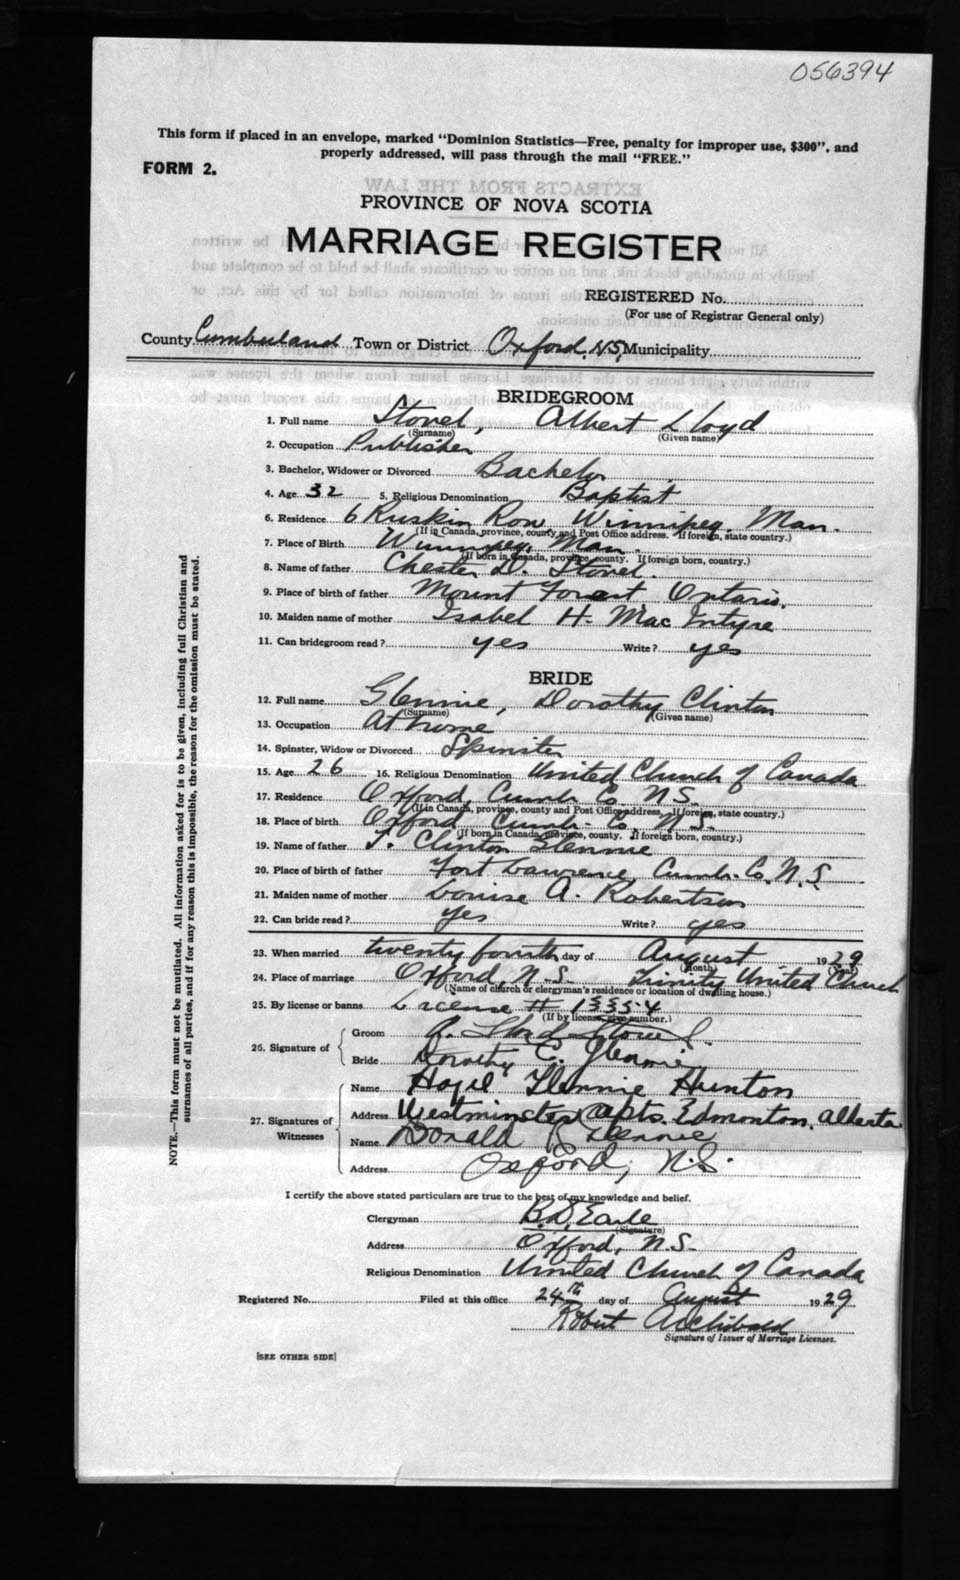 056394
This form if placed in an envelope, marked "Dominion Statistics—Free, penalty for improper use, $300", and
properly addressed, will pass through the mail "FREE."
FORM 2.
EXTRACTS FROM THE LAW
PROVINCE OF NOVA SCOTIA
MARRIAGE REGISTER
REGISTERED No.
(For use of Registrar General only)
County Cumberland Town or District Oxford, N.S. Municipality
BRIDEGROOM
1. Full name Stovel, Albert Lloyd
(Surname) (Given name)
2. Occupation Publisher
3. Bachelor, Widower or Divorced Bachelor
4. Age 32 5. Religious Denomination Baptist
6. Residence 6 Ruskin Row, Winnipeg, Man.
(If in Canada, province, county and Post Office address. If foreign, state country.)
7. Place of Birth Winnipeg, Man.
(If born in Canada, province, county. If foreign born, country.)
8. Name of father Chester D. Stovel.
9. Place of birth of father Mount Forest, Ontario.
10. Maiden name of mother Isabel H. MacIntyre
11. Can bridegroom read? yes Write? yes
BRIDE
12. Full name Glennie, Dorothy Clinton
(Surname) (Given name)
13. Occupation At home
14. Spinster, Widow or Divorced Spinster
15. Age 26 16. Religious Denomination United Church of Canada
17. Residence Oxford, Cumb. Co. N.S.
(If in Canada, province, county and Post Office address. If foreign, state country.)
18. Place of birth Oxford Cumb. Co. N.S.
(If born in Canada, province, county. If foreign born, country.)
19. Name of father Clinton Glennie
20. Place of birth of father Fort Lawrence, Cumb. Co. N.S.
21. Maiden name of mother Louise A. Robertson
22. Can bride read? yes Write? yes
23. When married twenty fourth day of August 1929
(Month) (Year)
24. Place of marriage Oxford, N.S. Trinity United Church
(Name of church or clergyman's residence or location of dwelling house.)
25. By license or banns License #
(If by license, give number.)
26. Signature of
Groom A. Lloyd Stovel.
Bride Dorothy C. Glennie
27. Signatures of Witnesses
Name Hazel Glennie Hunton
Address Westminster Apts. Edmonton, Alberta
Name Donald Glennie
Address Oxford, N.S.
I certify the above stated particulars are true to the best of my knowledge and belief.
Clergyman B.D. Earle
(Signature)
Address Oxford, N.S.
Religious Denomination United Church of Canada
Registered No. Filed at this office 24th day of August 1929
Robert Archibald
Signature of Issuer of Marriage Licenses.
[SEE OTHER SIDE]
NOTE.—This form must not be mutilated. All information asked for is to be given, including full Christian and
surnames of all parties, and if for any reason this is impossible, the reason for the omission must be stated.